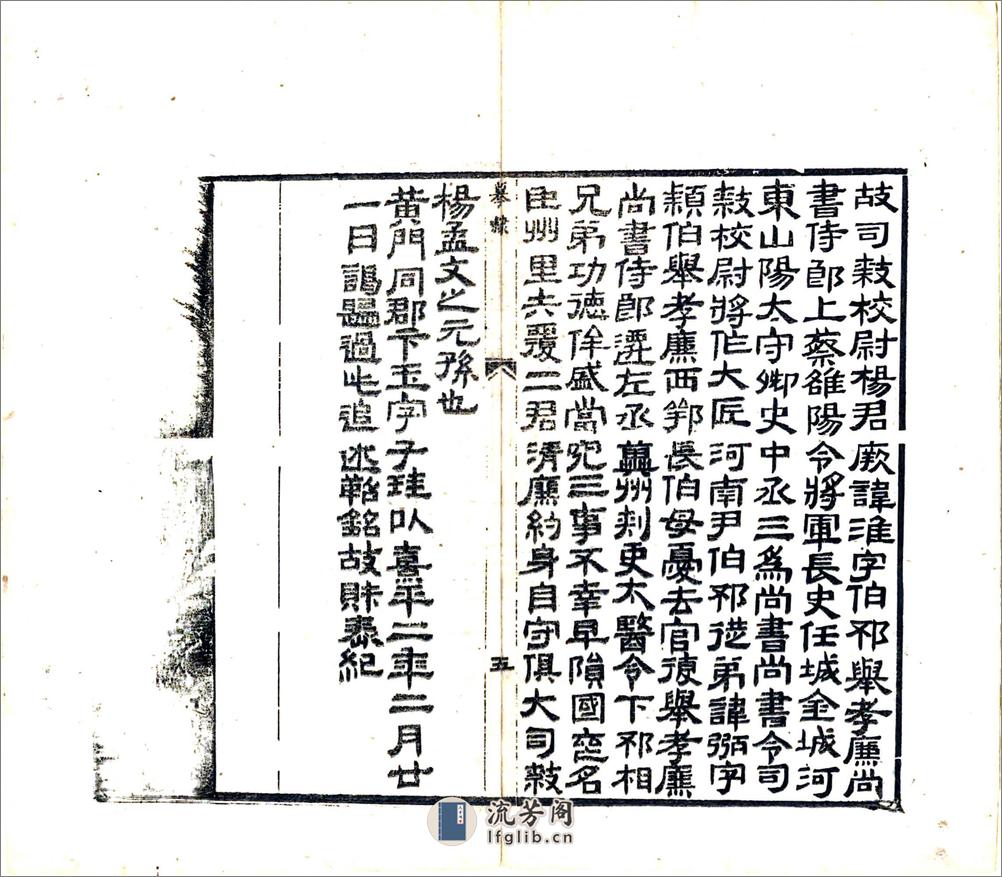 故司隸校尉楊君厥諱淮字伯邳舉孝廉尚
書侍郎上蔡雒陽令將軍長史任城金城河
東山陽太守御史中丞三為尚書尚書令司
隸校尉將作大匠河南尹伯邳從弟諱弼字
穎伯舉孝廉西鄂長伯母憂去官復舉孝廉
尚書侍郎遷左丞冀州刺史太醫令下邳相
兄弟功德侔盛當究三事不幸早隕國喪名
臣州里失覆二君清廉約身自守俱大司隸
五
楊孟文之元孫也
黃門同郡卞玉字子珪以熹平二年二月廿
一日謁歸過此追述勒銘故財表紀
流芳阁
lfglib.cn